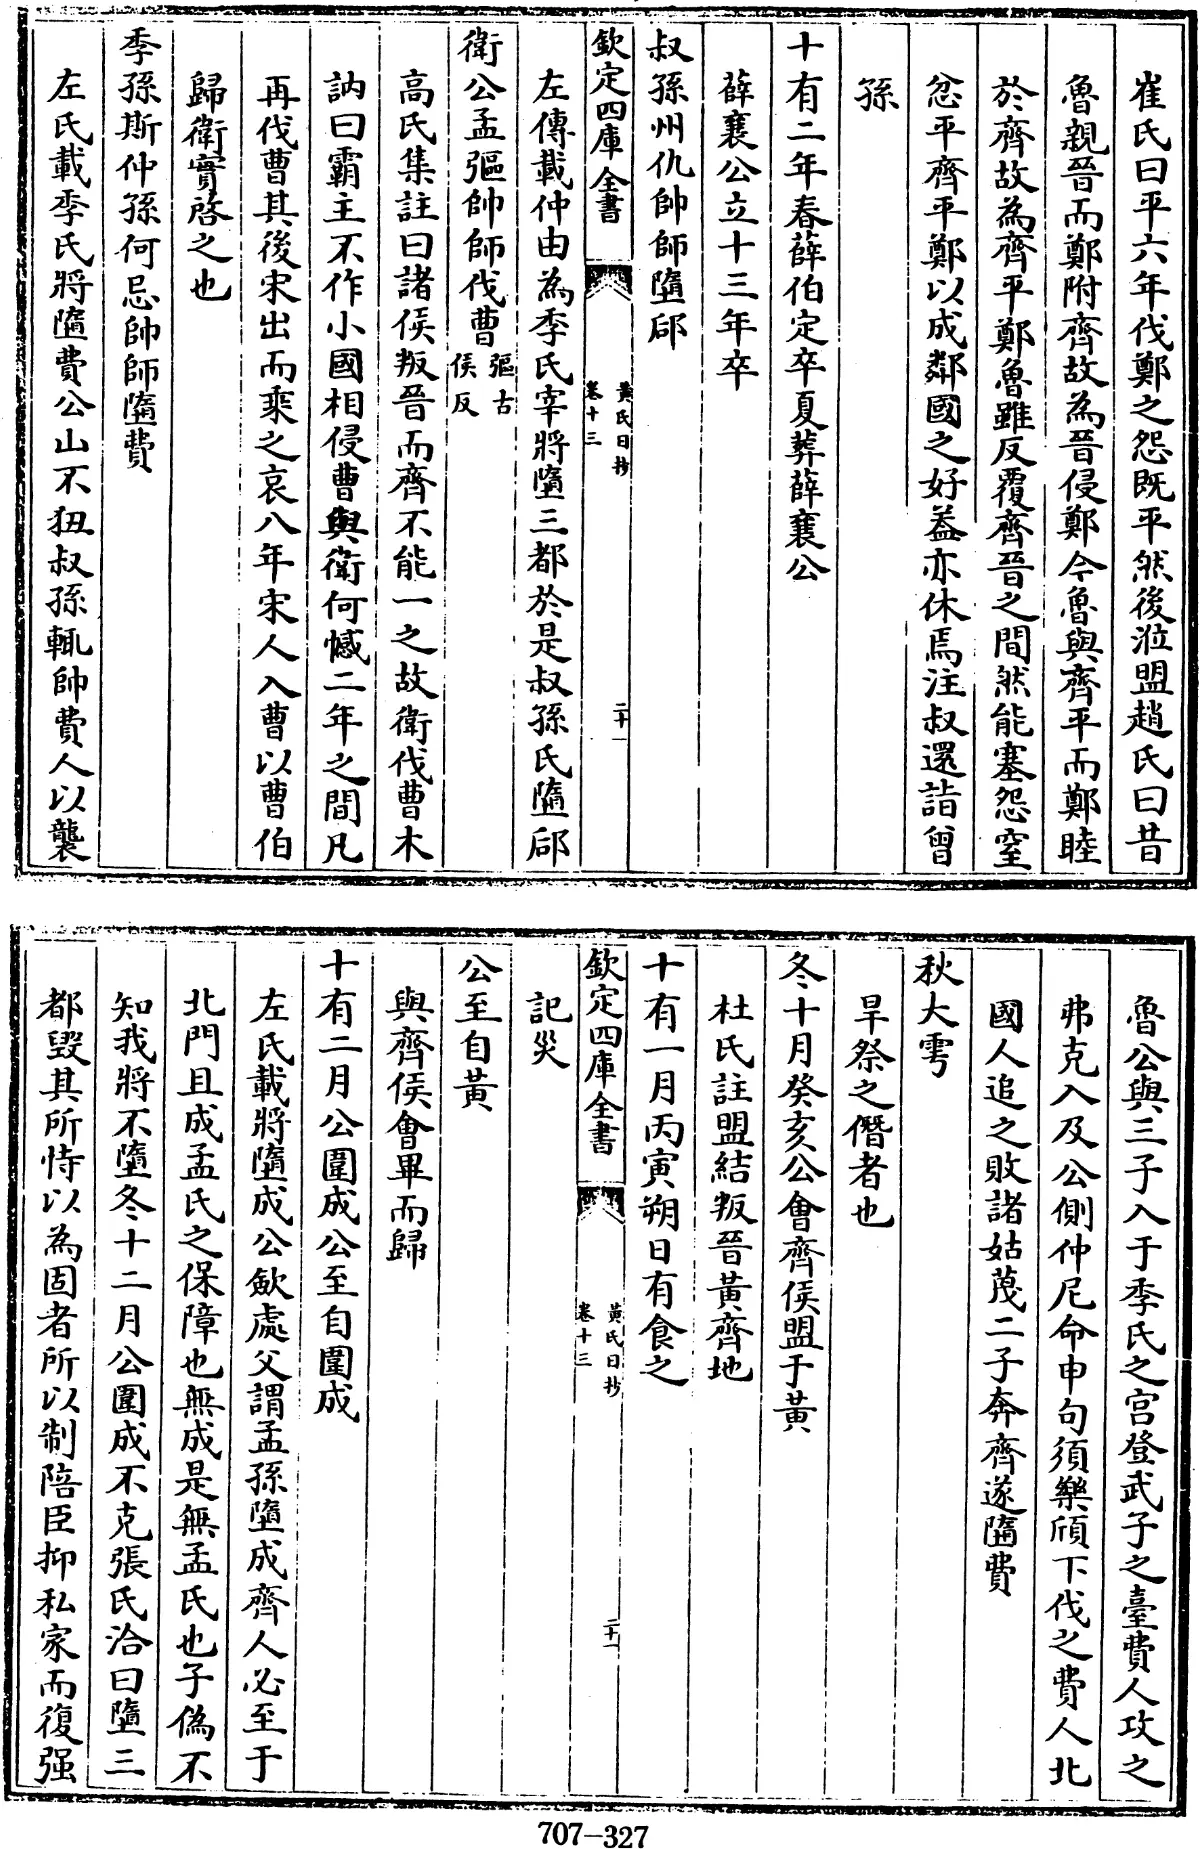 崔氏曰平六年伐鄭之怨既平然後涖盟趙氏曰昔
魯親晉而鄭附齊故為晉侵鄭今魯與齊平而鄭睦
於齊故為齊平鄭魯雖反覆齊晉之間然能塞怨窒
忿平齊平鄭以成鄰國之好蓋亦休焉注叔還詣曾
孫
十有二年春薛伯定卒夏葬薛襄公
薛襄公立十三年卒
叔孫州仇帥師墮郈
欽定四庫全書
黃氏日抄
卷十三
二十一
左傳載仲由為季氏宰將墮三都於是叔孫氏墮郈
衛公孟彄帥師伐曹彄古
侯反
高氏集註曰諸侯叛晉而齊不能一之故衛伐曹木
訥曰霸主不作小國相侵曹與衛何憾二年之間凡
再伐曹其後宋出而乘之哀八年宋人入曹以曹伯
歸衛實啓之也
季孫斯仲孫何忌帥師墮費
左氏載季氏將墮費公山不狃叔孫輒帥費人以襲
魯公與三子入于季氏之宮登武子之臺費人攻之
弗克入及公側仲尼命申句須樂頎下伐之費人北
國人追之敗諸姑蔑二子奔齊遂墮費
秋大雩
旱祭之僭者也
冬十月癸亥公會齊侯盟于黃
杜氏註盟結叛晉黃齊地
十有一月丙寅朔日有食之
欽定四庫全書
黃氏日抄
卷十三
二十一
記災
公至自黃
與齊侯會畢而歸
十有二月公圍成公至自圍成
左氏載將墮成公歛處父謂孟孫墮成齊人必至于
北門且成孟氏之保障也無成是無孟氏也子偽不
知我將不墮冬十二月公圍成不克張氏洽曰墮三
都毀其所恃以為固者所以制陪臣抑私家而復强
707-327